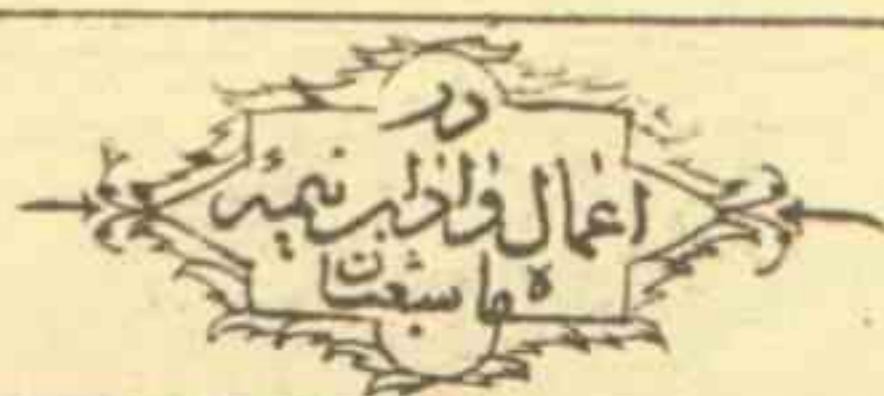 در
اعمال و اذکار نیمهٔ
ماه شعبان